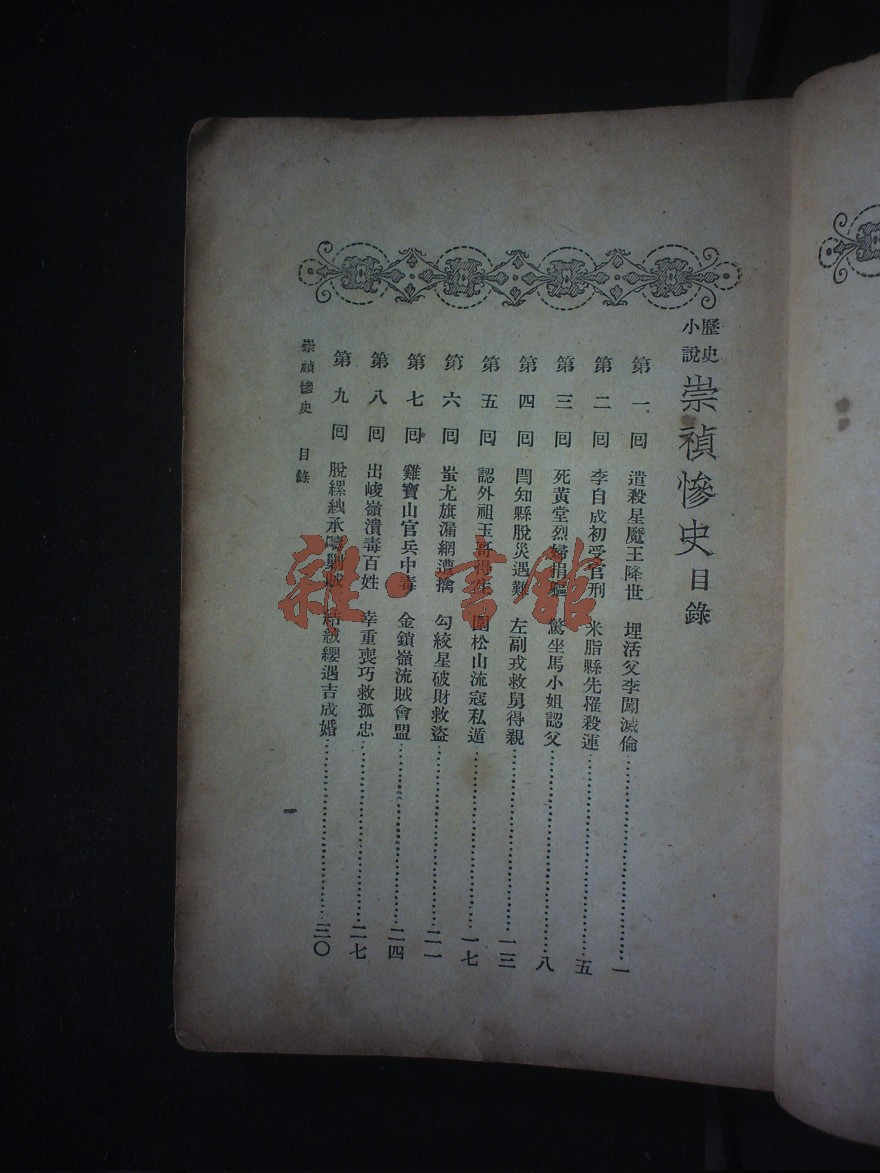 歷史小說 崇禎慘史 目錄
第一回 遣殺星魔王降世 埋活父李闖滅倫 一
第二回 李自成初受官刑 米脂縣先罹殺運 五
第三回 死黃堂烈婦捐軀 驚坐馬小姐認父 八
第四回 閆知縣脫災遇難 左副戎救舅得親 一三
第五回 認外祖玉哥得生 圍松山流寇私遁 一七
第六回 蚩尤旗漏網遭擒 勾絞星破財救盜 二一
第七回 雞寶山官兵中毒 金鎖嶺流賊會盟 二四
第八回 出峻嶺潰毒百姓 幸重喪巧救孤忠 二七
第九回 脫縲絏承 賊 結絨纓遇吉成婚 三〇
崇禎慘史 目錄
一
雜·書館